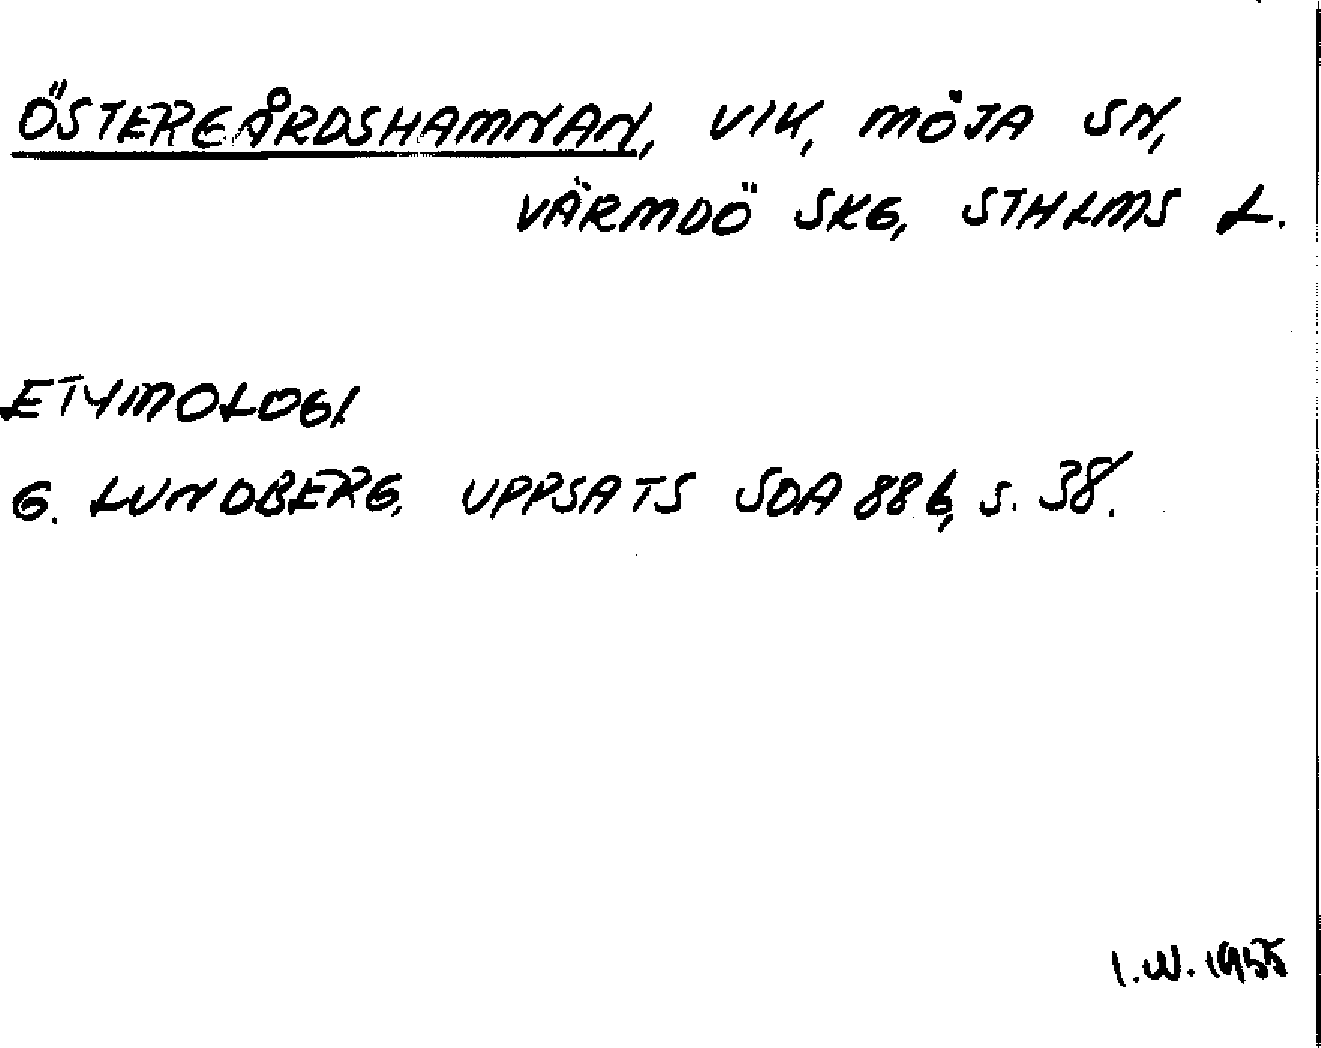 ÖSTERGÅRDSHAMNAN, VIK, MÖJA SN,
VÄRMDÖ SKG, STHLMS L.
ETYMOLOGI
G. LUNDBERG, UPPSATS SOA 88 b, s. 38.
I.W. 1955